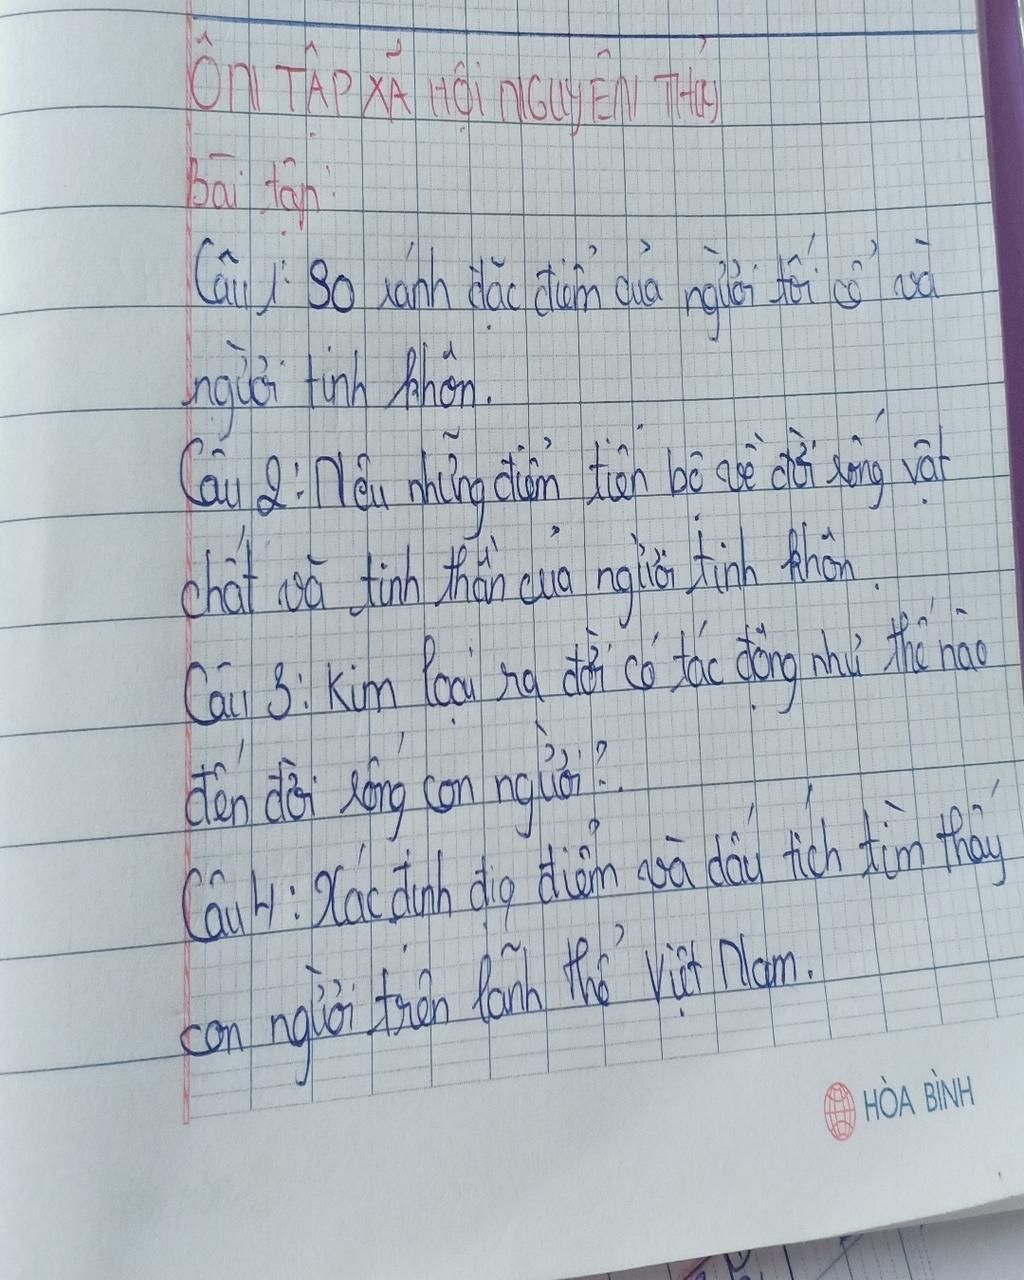 ÔN TẬP XÃ HỘI NGUYÊN THỦY
Bài tập:
Câu 1: So sánh đặc điểm của người tối cổ và
người tinh khôn.
Câu 2: Nêu những điểm tiến bộ về đời sống vật
chất và tinh thần của người tinh khôn.
Câu 3: Kim loại ra đời có tác động như thế nào
đến đời sống con người?
Câu 4: Xác định địa điểm và dấu tích tìm thấy
con người trên lãnh thổ Việt Nam.
HÒA BÌNH